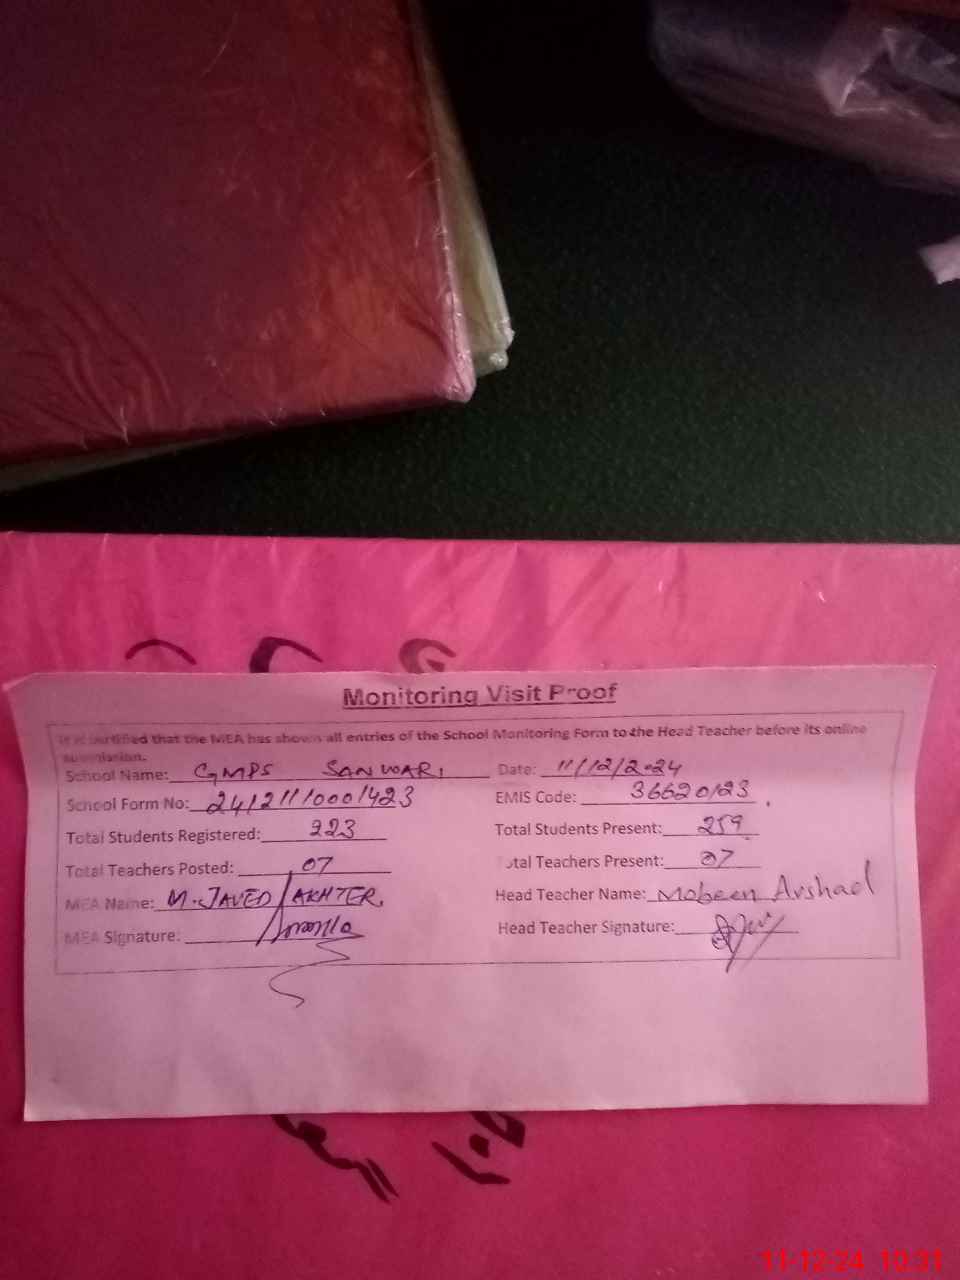 Monitoring Visit Proof
It is certified that the MEA has shown all entries of the School Monitoring Form to the Head Teacher before its online
submission.
School Name: GMPS SANWARI Date: 11/12/2024
School Form No: 24121110001423 EMIS Code: 36620123
Total Students Registered: 223 Total Students Present: 259
Total Teachers Posted: 07 Total Teachers Present: 07
MEA Name: M. JAVED AKHTER. Head Teacher Name: Mobeen Arshad
MEA Signature: Head Teacher Signature:
11-12-24 10:31